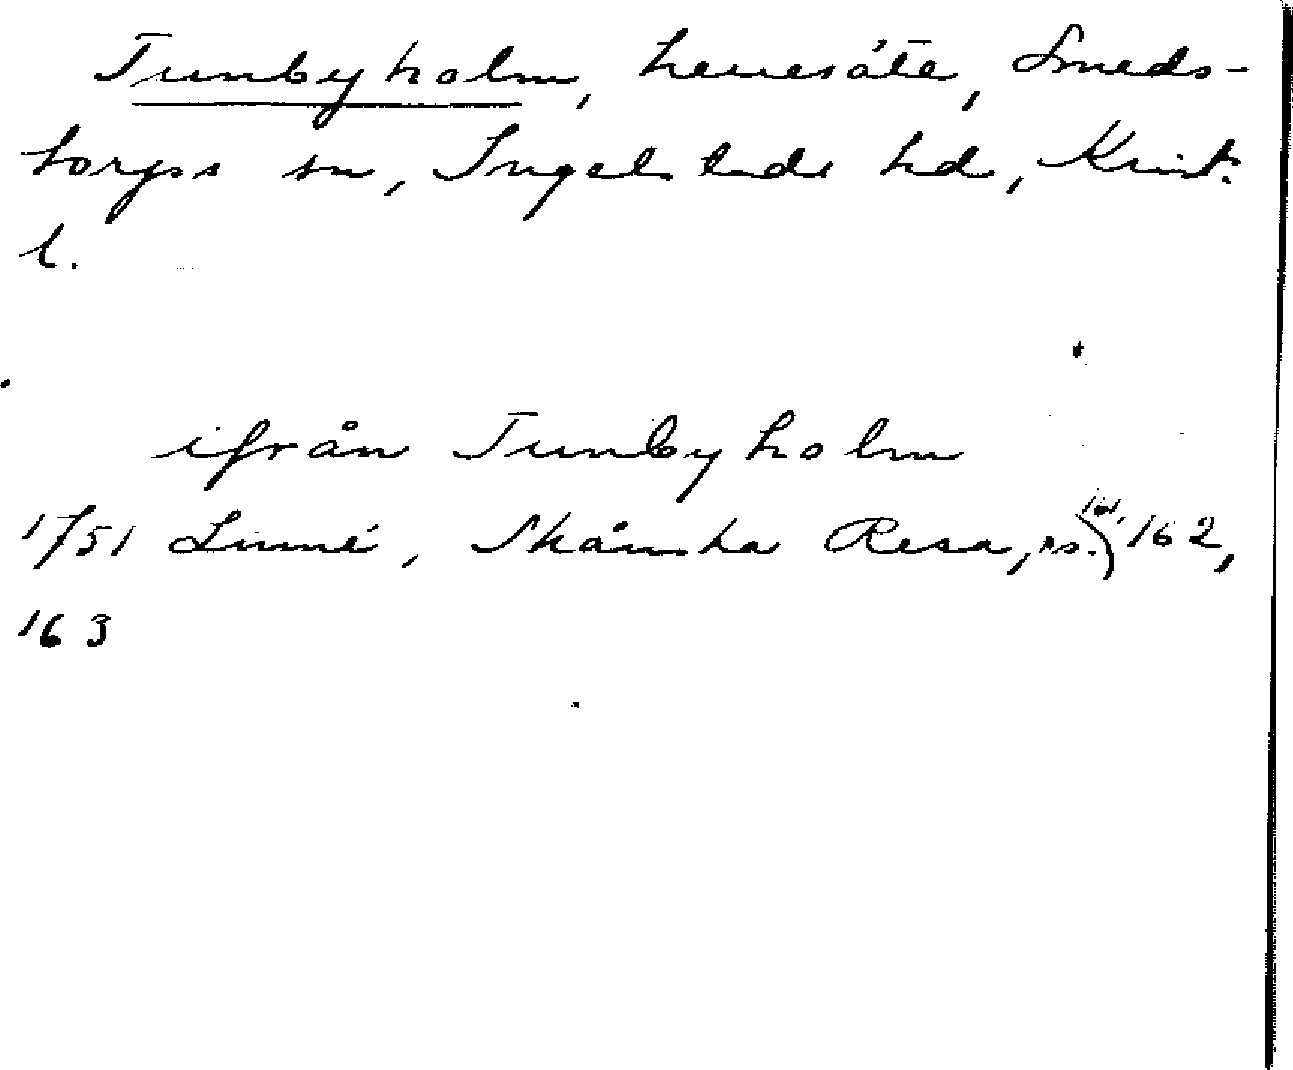 Tunbyholm, herresäte, Smeds-
torps sn, Ingelstads hd, Krist.
l.
ifrån Tunbyholm
1751 Linné, Skånska Resa, ps. 161, 162,
163